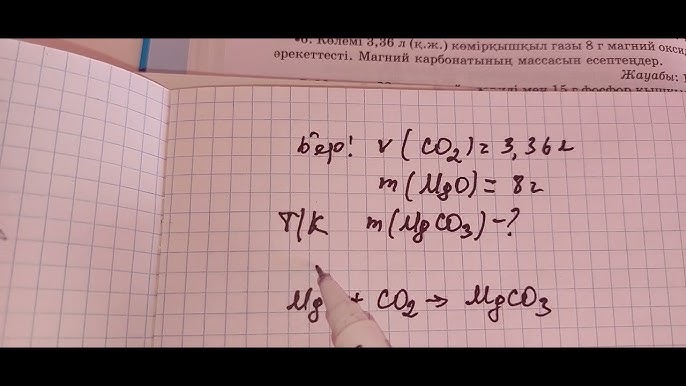 •6. Көлемі 3,36 л (қ.ж.) көмірқышқыл газы 8 г магний
әрекеттесті. Магний карбонатының массасын есептеңдер.
Жауабы:
15 г фосфор
бер! V(CO₂)= 3,36 л
m(MgO) = 8 г
Т/К m(MgCO₃) - ?
Mg + CO₂ → MgCO₃